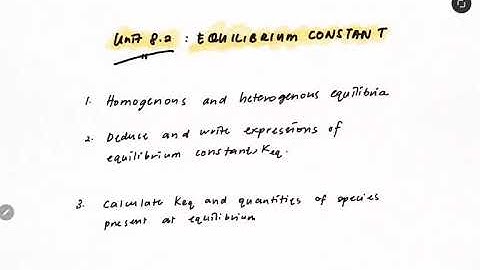 Unit 8.2 : EQUILIBRIUM CONSTANT
1. Homogenous and heterogenous equilibria
2. Deduce and write expressions of
equilibrium constant Keq.
3. Calculate Keq and quantities of species
present at equilibrium